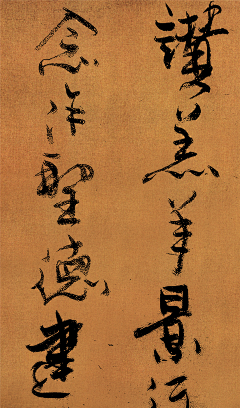 讚羔羊景行
念作聖德建